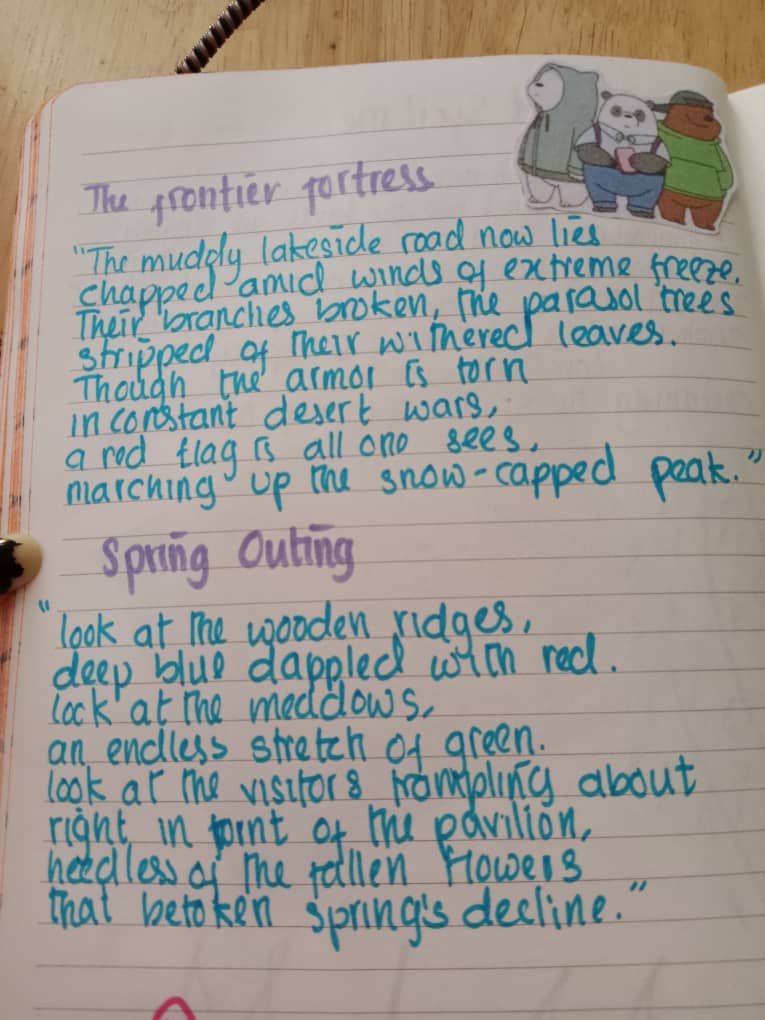 The frontier fortress
"The muddy lakeside road now lies
chapped amid winds of extreme freeze.
Their branches broken, the parasol trees
stripped of their withered leaves.
Though the armor is torn
in constant desert wars,
a red flag is all one sees,
marching up the snow-capped peak."
Spring Outing
"look at the wooden ridges,
deep blue dappled with red.
look at the meadows,
an endless stretch of green.
look at the visitors trampling about
right in front of the pavilion,
heedless of the fallen flowers
that betoken spring's decline."